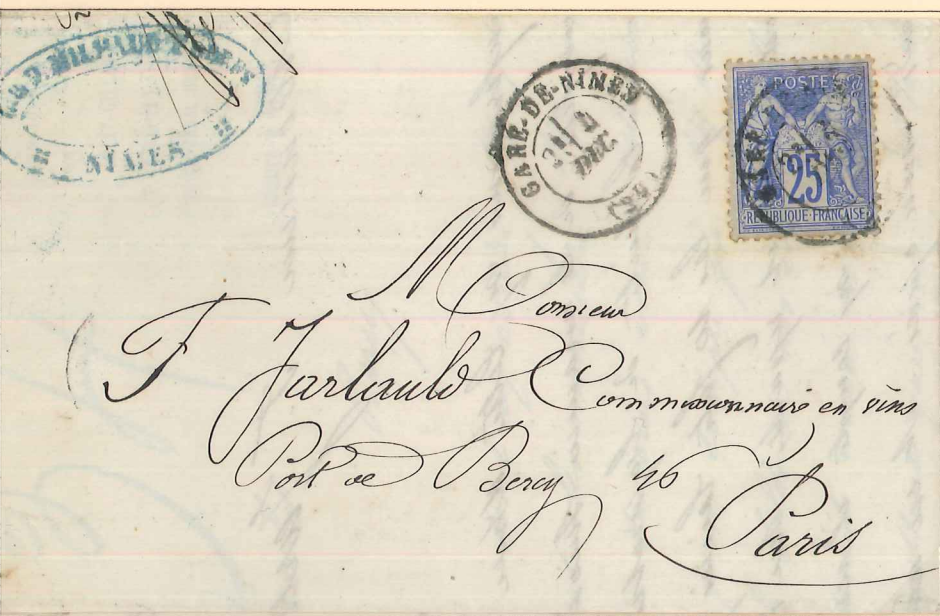 MILHAUD FRÈRES
NIMES
GARE-DE-NIMES
4
DEC.
(29)
POSTES
25
REPUBLIQUE FRANÇAISE
Monsieur
F Jarlauld Commissionnaire en vins
Port de Bercy 46
Paris